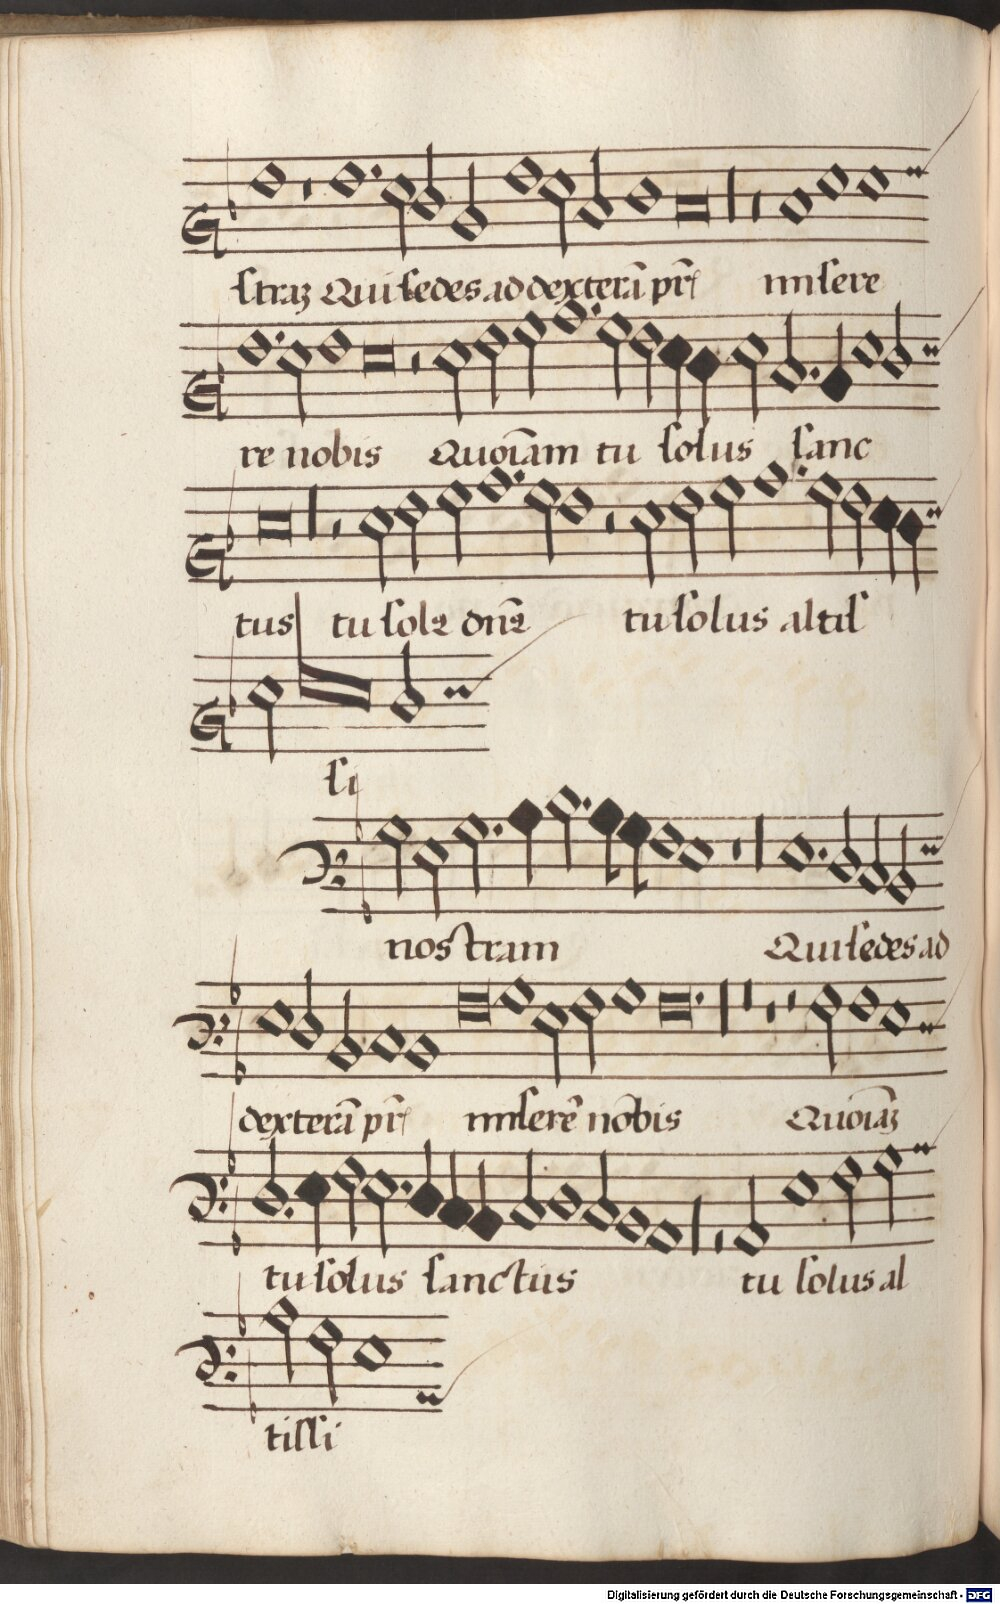 straꝫ Qui sedes ad dexterā pr̄ misere
re nobis Quoīam tu solus sanc
tus tu solꝰ dn̄e tu solus altis
si
nostram Qui sedes ad
dexterā pr̄ miserē nobis Quoīaꝫ
tu solus sanctus tu solus al
tissi
Digitalisierung gefördert durch die Deutsche Forschungsgemeinschaft - DFG